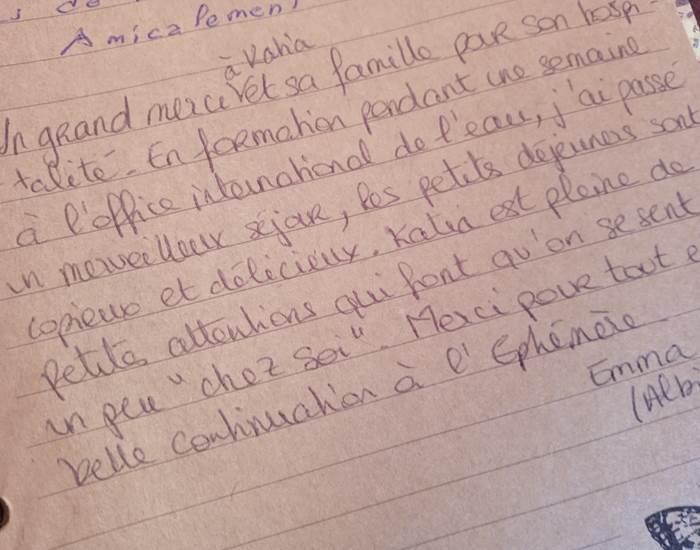 Amicalement
à Katia
Un grand merci et sa famille pour son hospi-
talité. En formation pendant une semaine
à l'office international de l'eau, j'ai passé
un merveilleux séjour, les petits déjeuners sont
copieux et délicieux. Katia est pleine de
petites attentions qui font qu'on se sent
un peu "chez soi". Merci pour tout e
belle continuation à l'Ephémère.
Emma
(Albi